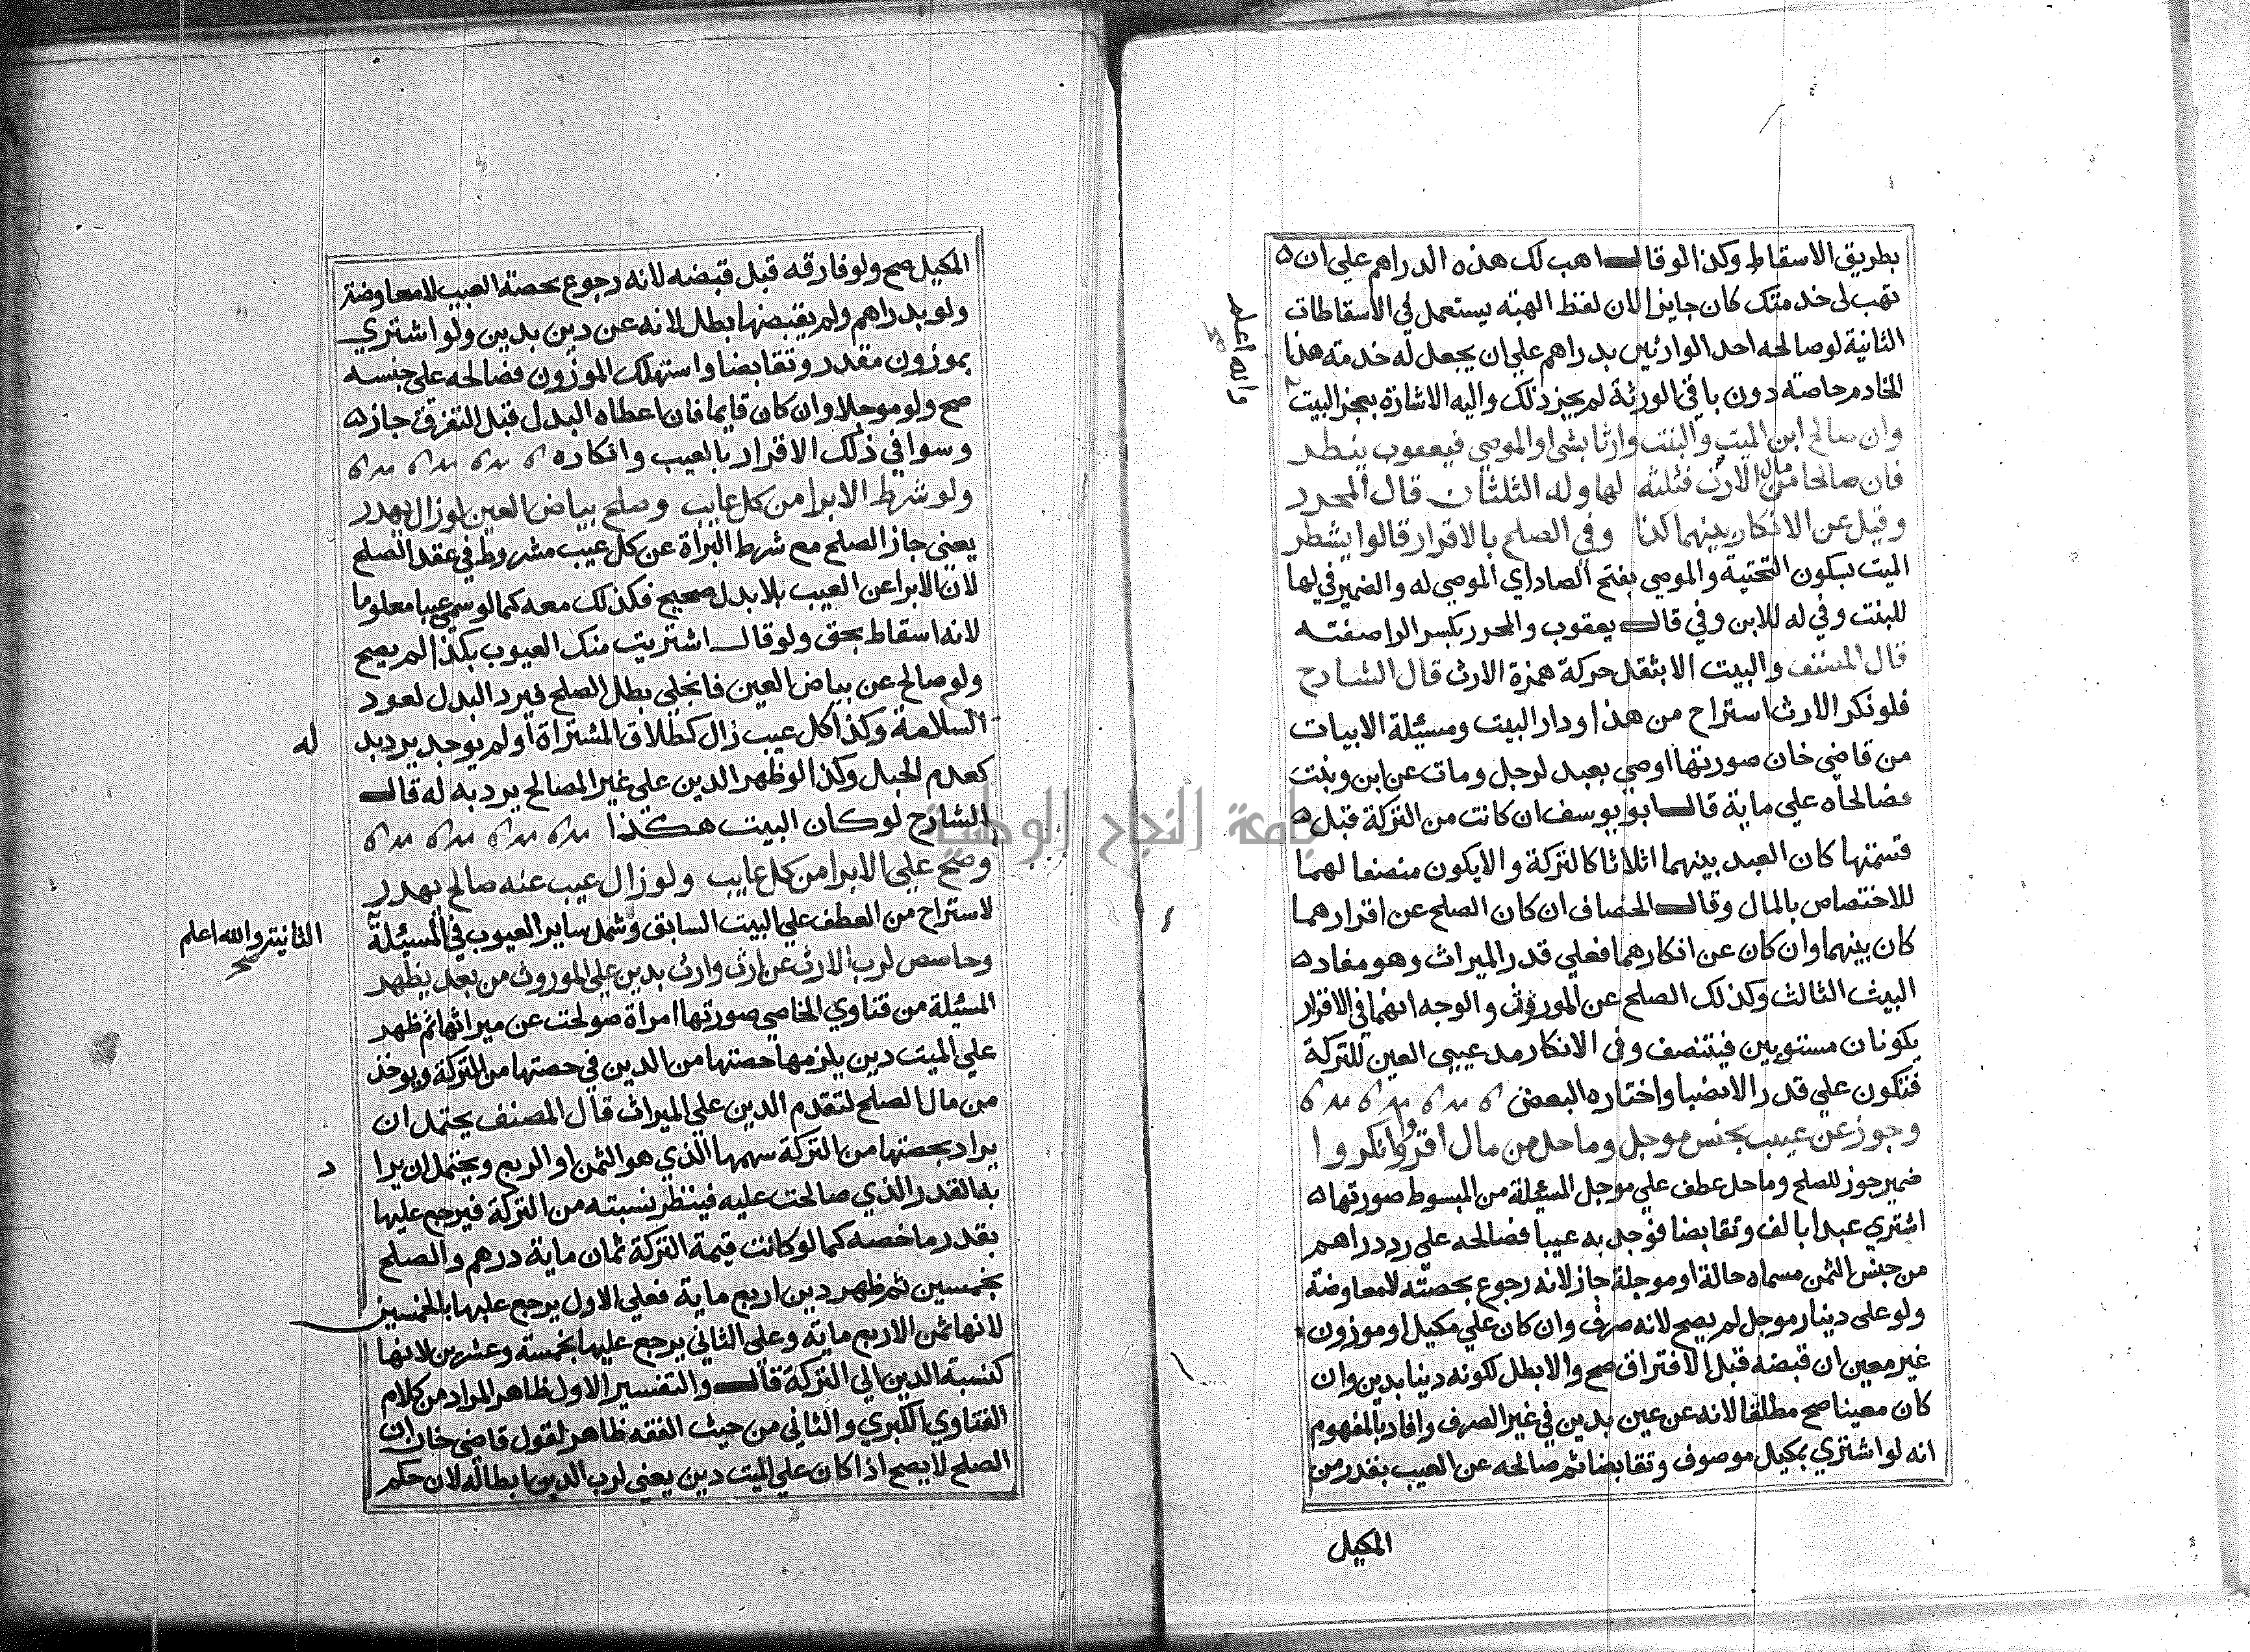 بطريق الاسقاط وكذا لو قال اهب لك هذه الدراهم علي ان
تهب لى خدمتك كان جايزا لان لفظ الهبة يستعمل في الاسقاطات
الثانية لو صالحه احد الوارثين بدراهم علي ان يجعل له خدمة هذا
الخادم خاصته دون باقي الورثة لم يجز ذلك واليه الاشارة بعجز البيت
والله اعلم
وان صالح ابن الميت والبنت وارثا بشئ او الموصي فيعقوب ينطر
فان صالحا من مال الارث فثلثه لها وله الثلثان قال المحرر
وقيل عن الانكار بينهما كذا وفي الصلح بالاقرار قالوا يشطر
الميت بسكون التحتية والموصي بفتح الصاد اي الموصي له والضمير في لها
للبنت وفي له للابن وفي قال يعقوب والمحرر بكسر الرا صفته
قال المصنف والبيت الا بثقل حركة همزة الارث قال الشارح
فلو نكر الارث استراح من هذا ودار البيت ومسئلة الابيات
من قاضي خان صورتها اوصي بعبد لرجل ومات عن ابن وبنت
فصالحاه علي ماية قال ابو يوسف ان كانت من التركة قبل
قسمتها كان العبد بينهما اثلاثا كالتركة والا يكون منصفا لهما
للاختصاص بالمال وقال الخصاف ان كان الصلح عن اقرارهما
كان بينهما وان كان عن انكارهما فعلي قدر الميراث وهو مفاد
البيت الثالث وكذلك الصلح عن الموروث والوجه انهما في الاقرار
يكونان مستويين فيتنصف وفي الانكار مدعيي العين للتركة
فتكون علي قدر الانصبا واختاره البعض
وجوز عن عيب بجنس موجل وما حل من مال اقروا وانكروا
ضمير جوز للصلح وما حل عطف علي موجل المسئلة من المبسوط صورتها
اشتري عبدا بالف وتقابضا فوجد به عيبا فصالحه علي رد دراهم
من جنس الثمن مسماه حالة او موجلة جاز لانه رجوع بحصته لا معاوضة
ولو على دينار موجل لم يصح لانه صرف وان كان علي مكيل او موزون
غير معين ان قبضه قبل الافتراق صح والا بطل لكونه دينا بدين وان
كان معينا صح مطلقا لانه عن عين بدين في غير الصرف وافاد بالمفهوم
انه لو اشتري بمكيل موصوف وتقابضا ثم صالحه عن العيب بقدر من
المكيل
المكيل صح ولو فارقه قبل قبضه لانه رجوع بحصة العيب لا معاوضة
ولو بدراهم ولم يقبضها بطل لانه عن دين بدين ولو اشتري
بموزون مقدر وتقابضا واستهلك الموزون فصالحه على جنسه
صح ولو موجلا وان كان قايما فان اعطاه البدل قبل التفرق جاز
وسوا في ذلك الاقرار بالعيب وانكاره
ولو شرط الابرا من كل عايب وصلح بياض العين لو زال يهدر
يعني جاز الصلح مع شرط البراة عن كل عيب مشروط في عقد الصلح
لان الابرا عن العيب بلا بدل صحيح فكذلك معه كما لو سمي عيبا معلوما
لانه اسقاط بحق ولو قال اشتريت منك العيوب بكذا لم يصح
ولو صالح عن بياض العين فانجلي بطل الصلح فيرد البدل لعود
السلامة وكذا كل عيب زال كطلاق المشتراة او لم يوجد يرد بد
له
كعدم الحبل وكذا لو ظهر الدين علي غير المصالح يرد به له قال
الشارح لو كان البيت هكذا
وصح علي الابرا من كل عايب ولو زال عيب عنه صالح يهدر
لاستراح من العطف علي البيت السابق وشمل ساير العيوب في المسئلة
الثانية والله اعلم
صح
وحاصص لرب الارث عن ارث وارث بدين علي الموروث من بعد يظهر
المسئلة من فتاوي الخاصي صورتها امراة صولحت عن ميراثها ثم ظهر
علي الميت دين يلزمها حصتها من الدين في حصتها من التركة ويوخذ
من مال الصلح لتقدم الدين علي الميراث قال المصنف يحتمل ان
يراد بحصتها من التركة سهمها الذي هو الثمن او الربع ويحتمل ان يرا
د
به القدر الذي صالحت عليه فينظر نسبته من التركة فيرجع عليها
بقدر ما خصه كما لو كانت قيمة التركة ثمان ماية درهم والصلح
بخمسين ثم ظهر دين اربع ماية فعلي الاول يرجع عليها بالخمسين
لانها ثمن الاربع ماية وعلى الثاني يرجع عليها بخمسة وعشرين لانها
كنسبة الدين الي التركة قال والتفسير الاول ظاهر المراد من كلام
الفتاوي الكبري والثاني من حيث الفقه ظاهر لقول قاضي خان ان
الصلح لا يصح اذا كان علي الميت دين يعني لرب الدين ابطاله لان حكم
جامعة النجاح الوطنية